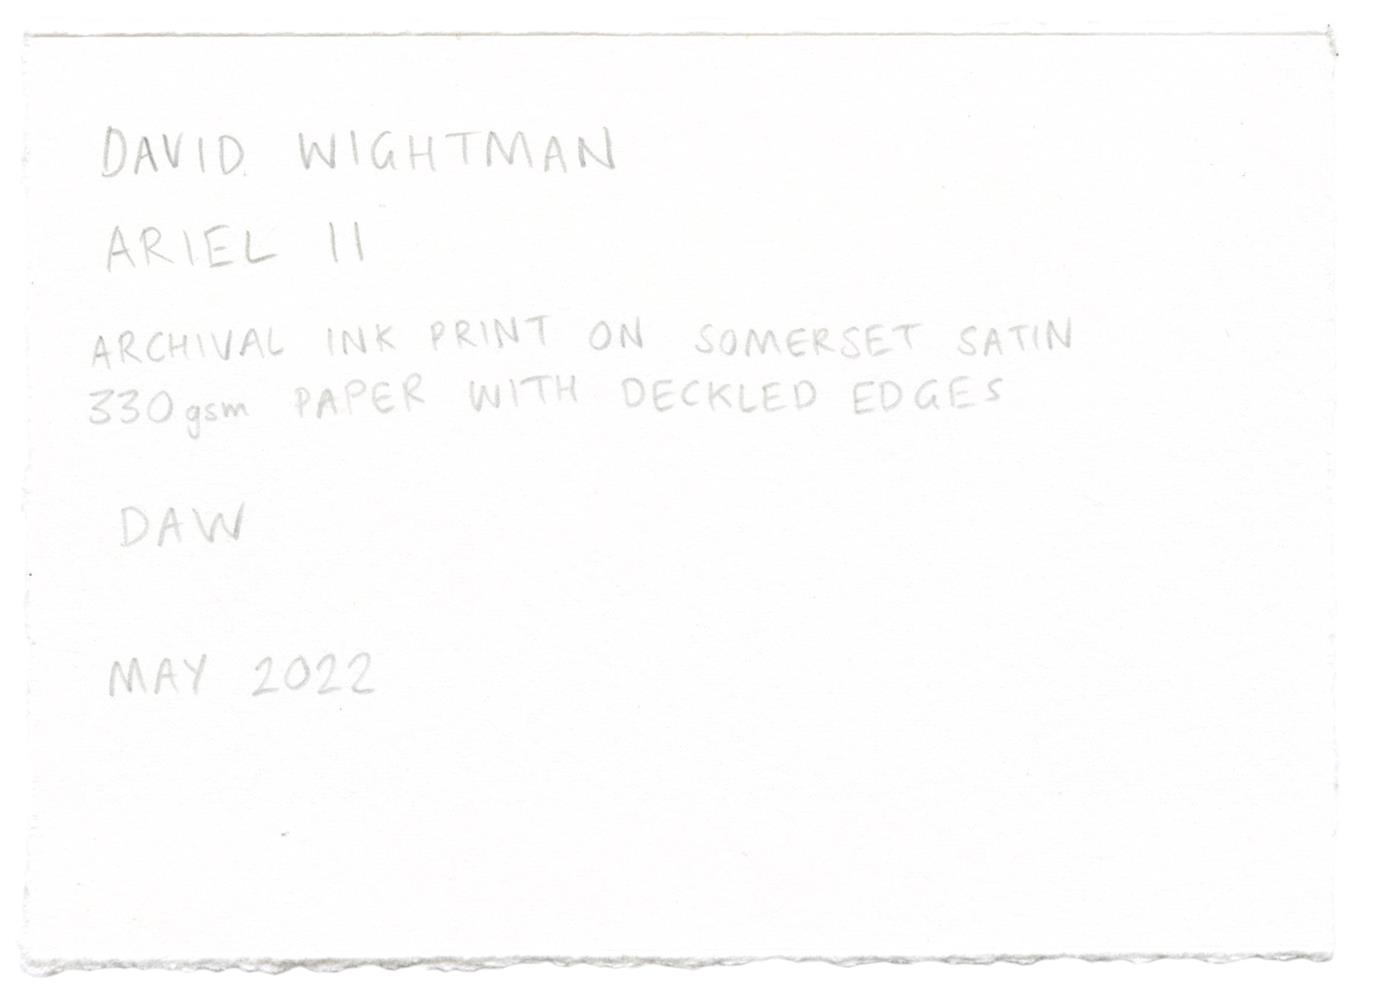 DAVID WIGHTMAN
ARIEL II
ARCHIVAL INK PRINT ON SOMERSET SATIN
330gsm PAPER WITH DECKLED EDGES
DAW
MAY 2022